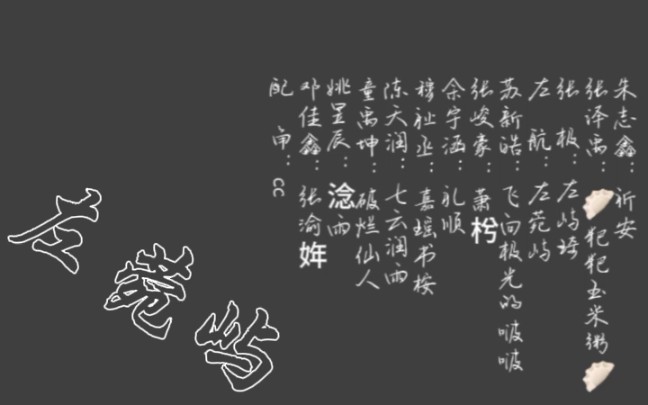 朱志鑫：祈安
张泽禹：🥟犯犯玉米粥🥟
张极：左屿瑶
左航：左菀屿
苏新皓：飞向极光的啵啵
张峻豪：萧枍
余宇涵：礼顺
穆祉丞：喜瑶书桉
陈天润：七云润雨
童禹坤：破烂仙人
姚昱辰：淰雨
邓佳鑫：张渝姩
配角：cc
左菀屿